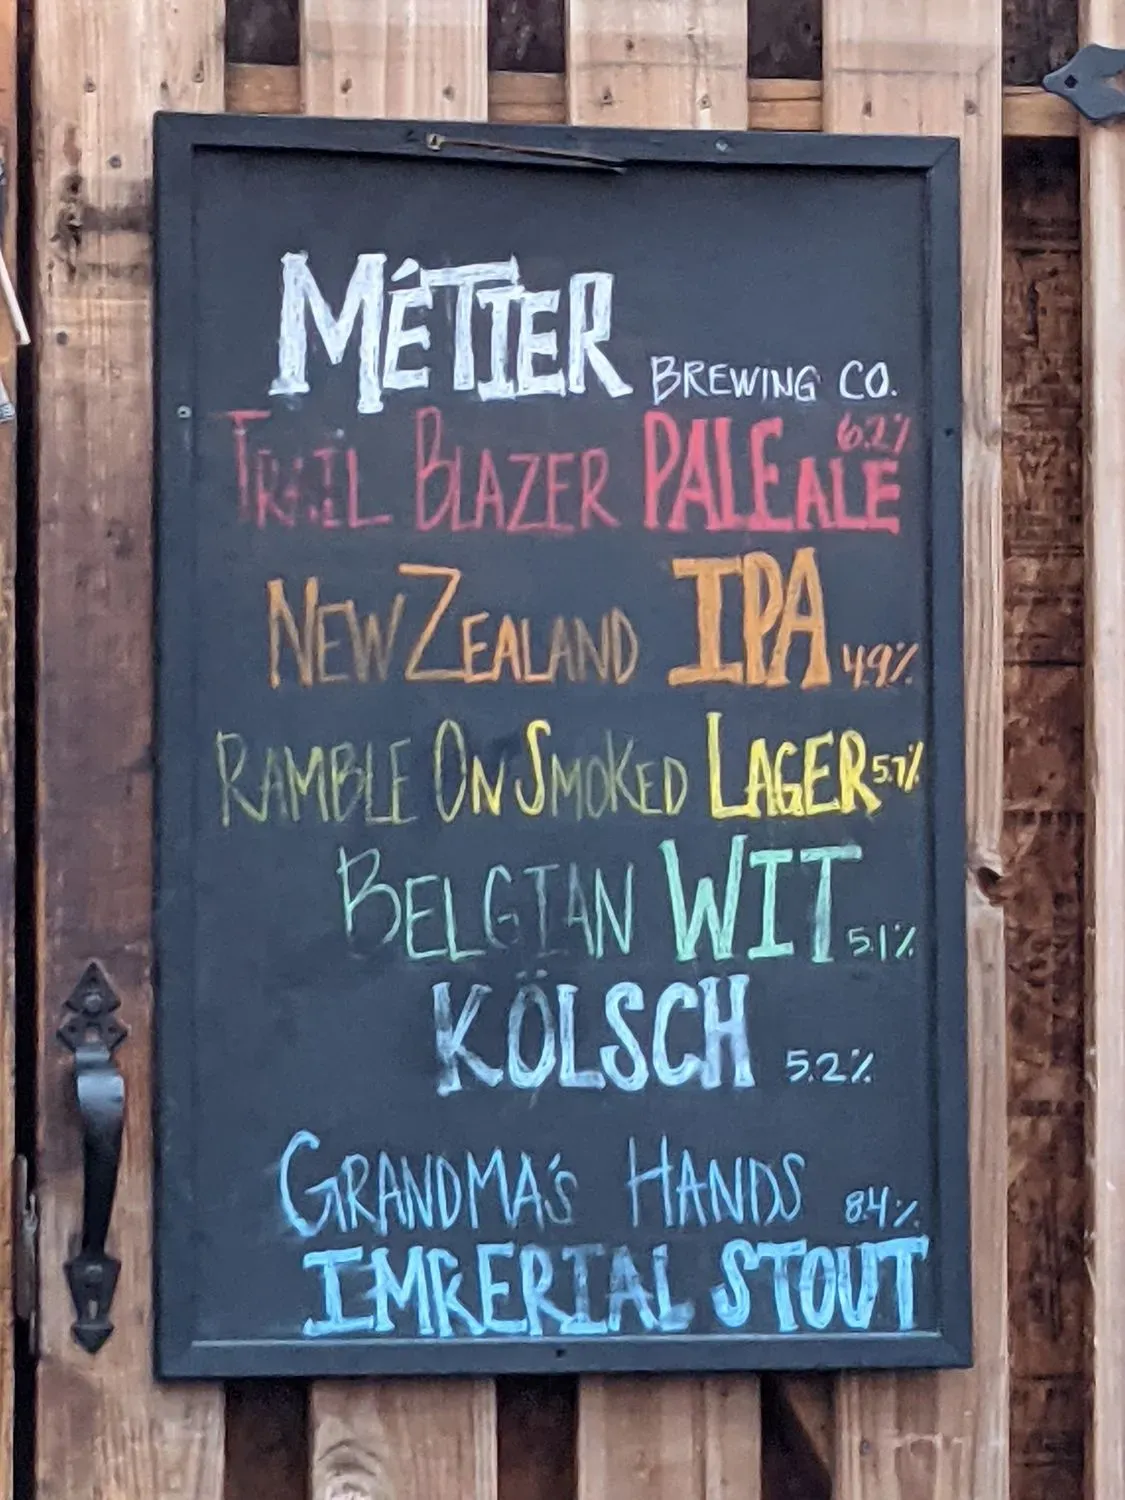 MÉTIER BREWING CO.
TRAIL BLAZER PALE ALE 6.2%
NEW ZEALAND IPA 4.9%
RAMBLE ON SMOKED LAGER 5.1%
BELGIAN WIT 5.1%
KÖLSCH 5.2%
GRANDMA'S HANDS 8.4%
IMPERIAL STOUT